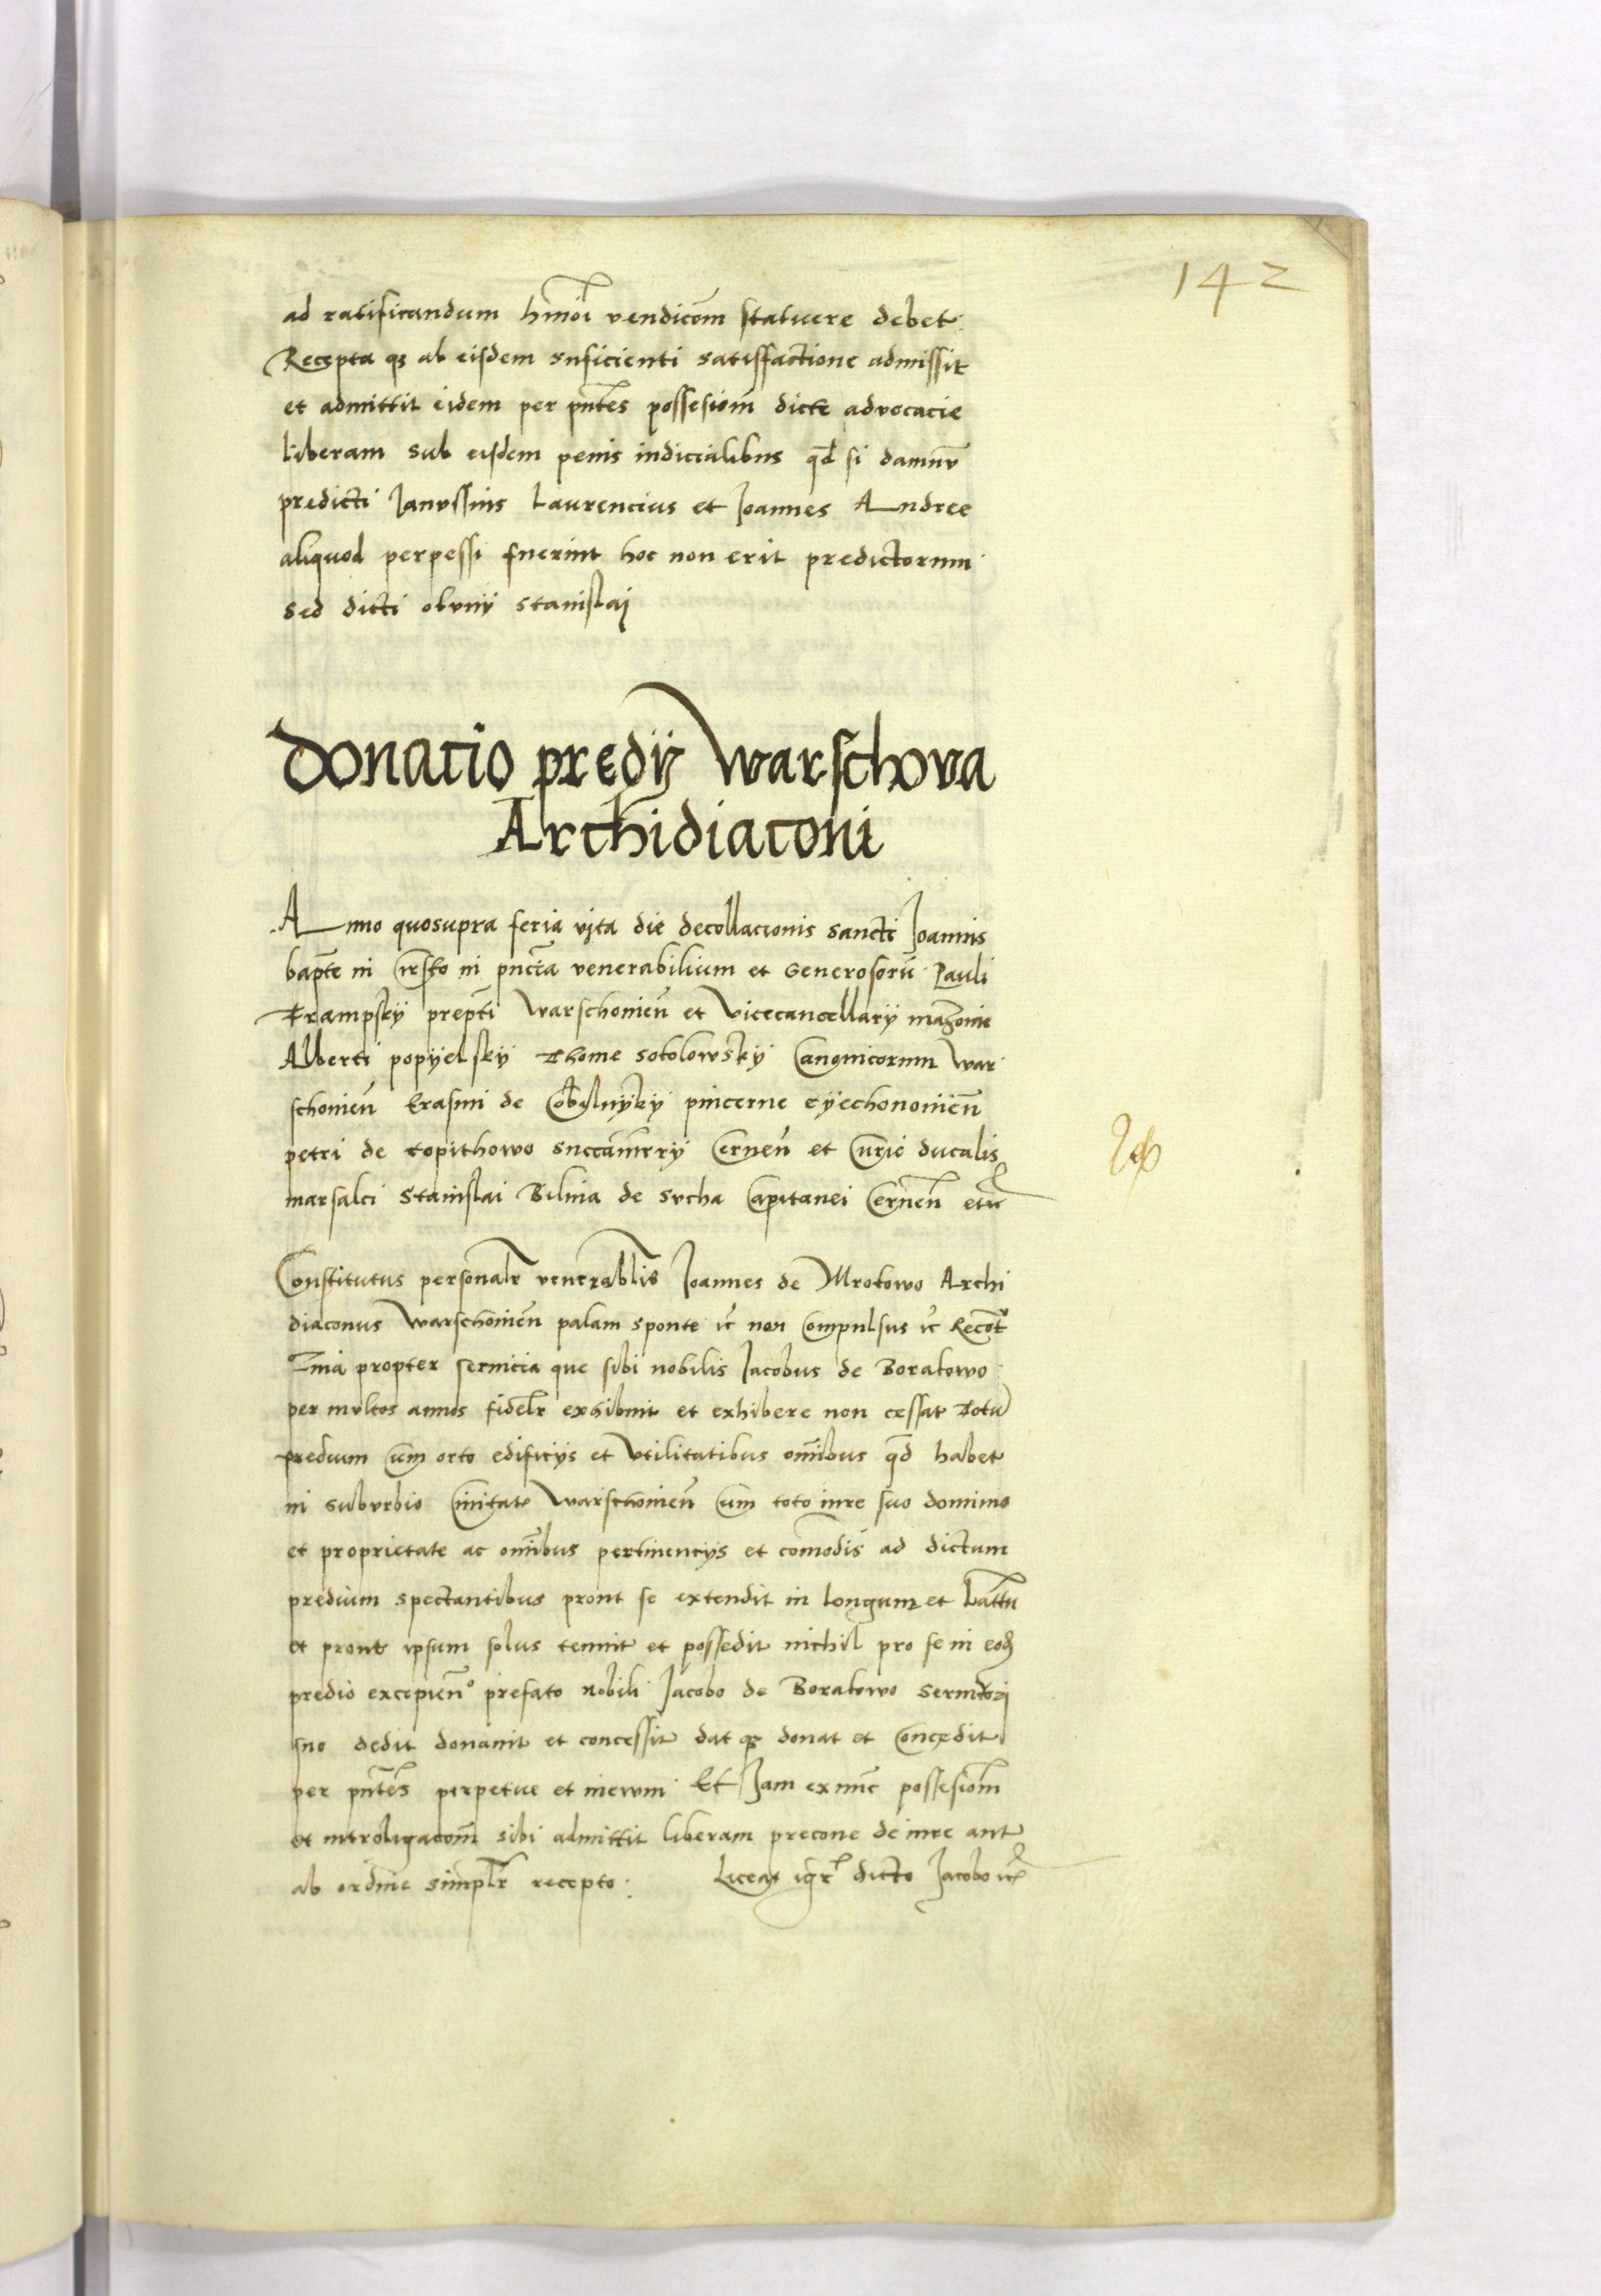 142
ad ratificandum hmoi vendicom statuere debet.
Recepta q3 ab eisdem suficienti satisfactione admissit
et admittit eidem per pntes possesiom dicte advocacie
liberam sub eisdem penis iudicialibus qd si damnu
predicti Janussius Laurencius et Joannes Andree
aliquod perpessi fuerint hoc non erit predictorum
sed dicti olvnij stanislaj
Donacio predij Warschova
Archidiaconi
Anno quosupra feria vjta die decollacionis sancti Joannis
bapte in in pncia venerabilium et Generosoru Pauli
prepti Warschouien et Vicecancellarij mazouie
Alberti popyelskÿ Thome sokolowskÿ Canonicorum War
schouien Erasmi de pincerne cÿechonouien
petri de kopithowo succamerarÿ Cernen et Curie ducalis
marsalci Stanislai Bilina de sucha Capitanei Cernen etc
Constitutus personalr venerablis Joannes de Mrokowo Archi
diaconus Warschouien palam sponte ic non Compulsus ic Recot
Quia propter seruicia que sibi nobilis Jacobus de Borakowo
per multos annos fidelr exhibuit et exhibere non cessat Totu
predium Cum orto edificijs et Vtilitatibus omibus qd habet
in suburbio Ciuitat Warschouien Cum toto iure suo dominio
et proprietate ac omibus pertinencijs et comodis ad dictum
predium spectantibus prout se extendit in longum et Lattu
et prout ipsum solus tenuit et possedit nichil pro se in eod
predio excipien prefato nobili Jacobo de Borakowo seruitori
suo dedit donauit et concessit dat q3 donat et Concedit
per pntes perpetue et in euum Et Jam ex nunc possesiom
et intrologacom sibi admittit liberam precone de iure aut
ab ordine simplr recepto. Liceat igr dicto Jacobo ic